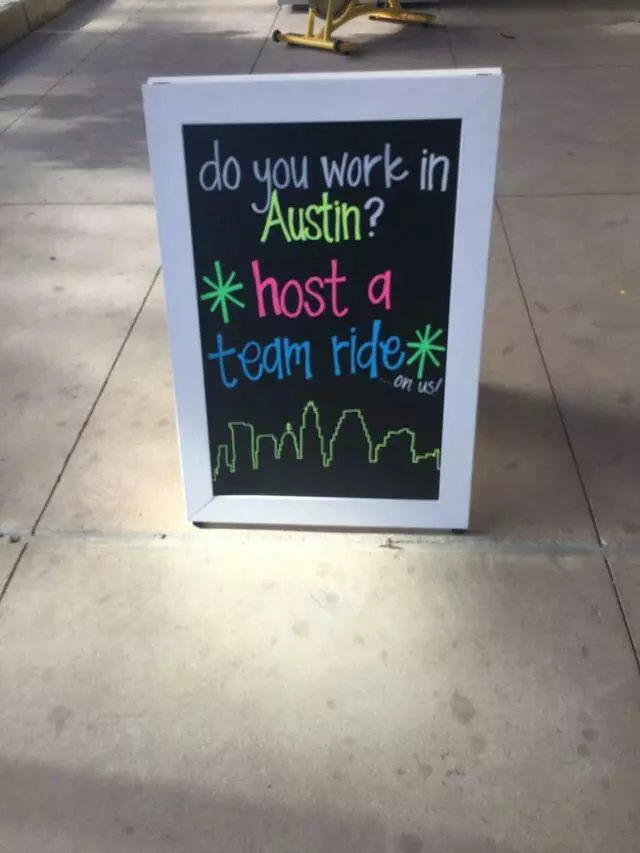 do you work in
Austin?
*host a
team ride*
...on us!